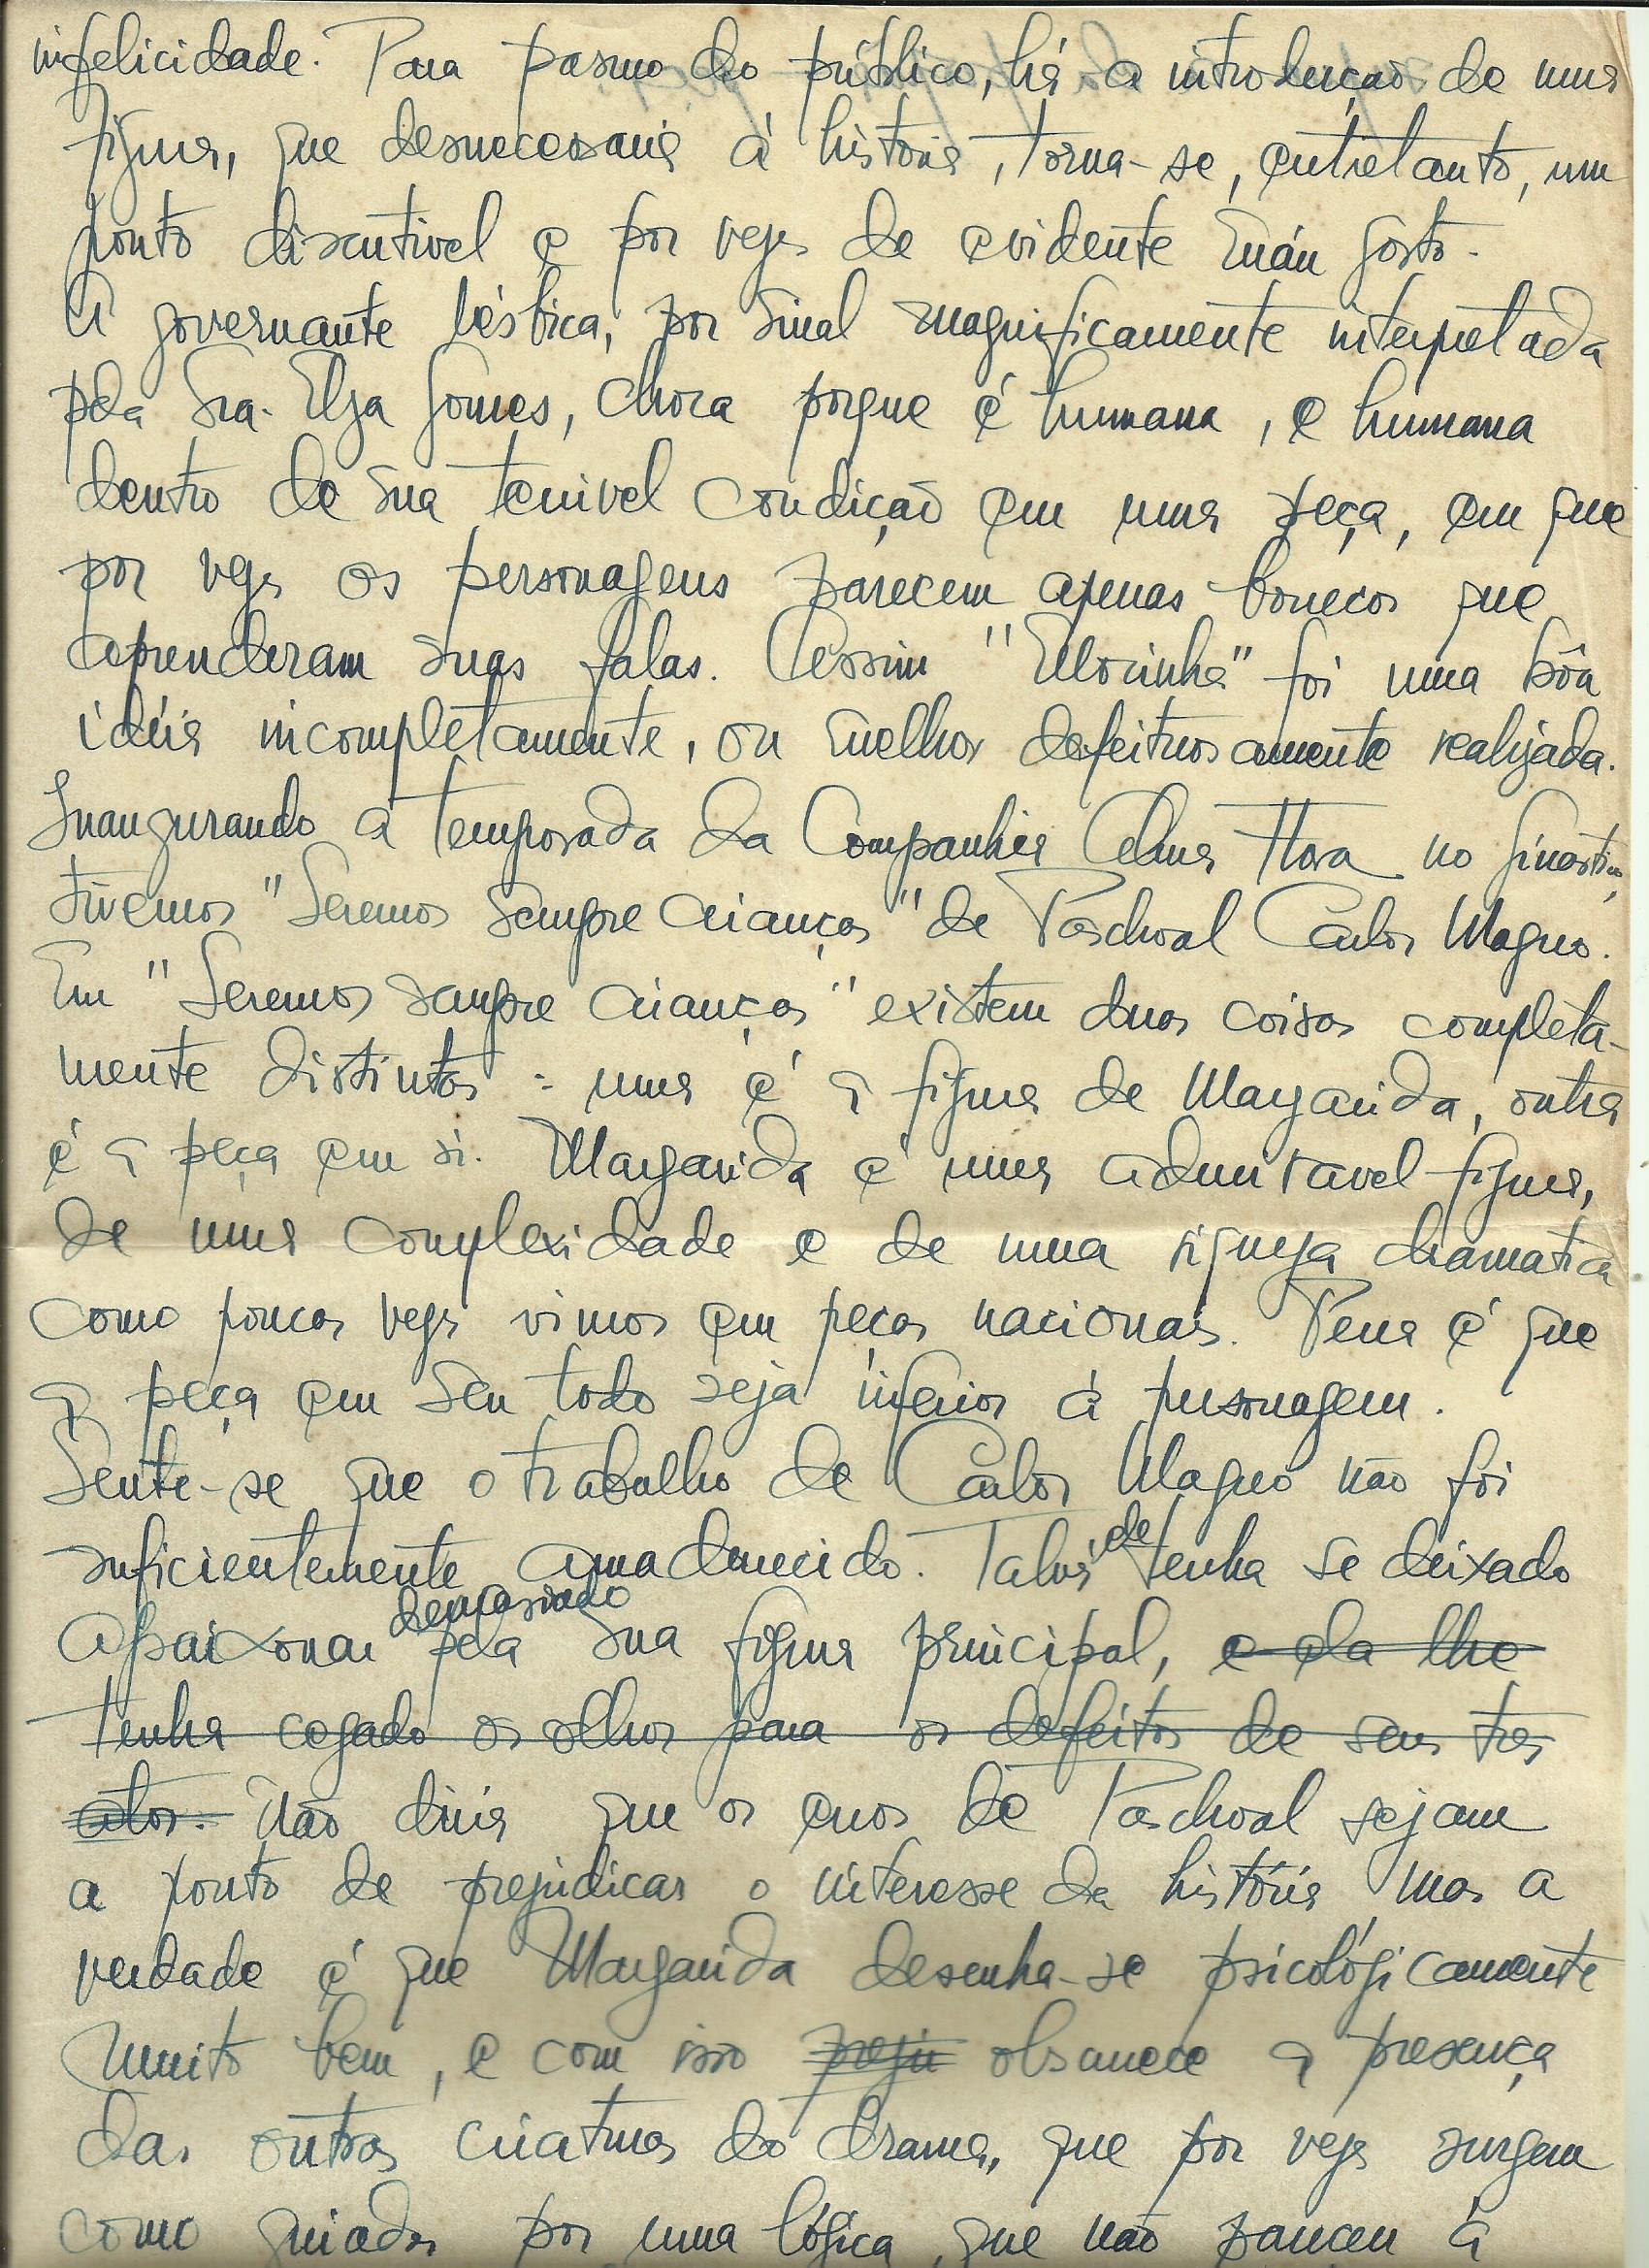 infelicidade. Para pasmo do público, há a introdução de uma
figura, que desnecessária á história, torna-se, entretanto, um
ponto discutivel e por vezes de evidente máu gosto.
A governante lésbica, por sinal magnificamente interpretada
pela Sra. Elza Gomes, chora porque é humana, e humana
dentro de sua terrivel condição em uma peça, em que
por vezes os personagens parecem apenas bonecos que
aprenderam suas falas. Assim "Mocinha" foi uma bôa
idéia incompletamente, ou melhor defeituosamente realizada.
Inaugurando a temporada da Companhia Alma Flora no Ginástico,
tivemos "Seremos sempre crianças" de Paschoal Carlos Magno.
Em "Seremos sempre crianças" existem duas coisas completa-
mente distintas: uma é a figura de Margarida, outra
é a peça em si. Margarida é uma admiravel figura,
de uma complexidade e de uma riqueza dramatica
como poucas vezes vimos em peças nacionais. Pena é que
a peça em seu todo seja inferior á personagem.
Sente-se que o trabalho de Carlos Magno não foi
suficientemente amadurecido. Talvês ele tenha se deixado
apaixonar demasiado pela sua figura principal, e ela lhe
tenha cegado os olhos para os defeitos de seus tres
atos. Não diria que os erros de Paschoal sejam
a ponto de prejudicar o interesse da história mas a
verdade é que Margarida desenha-se psicológicamente
muito bem, e com isso preju obscurece a presença
das outras criaturas do drama, que por vezes surgem
como guiadas por uma lógica, que não pareceu á